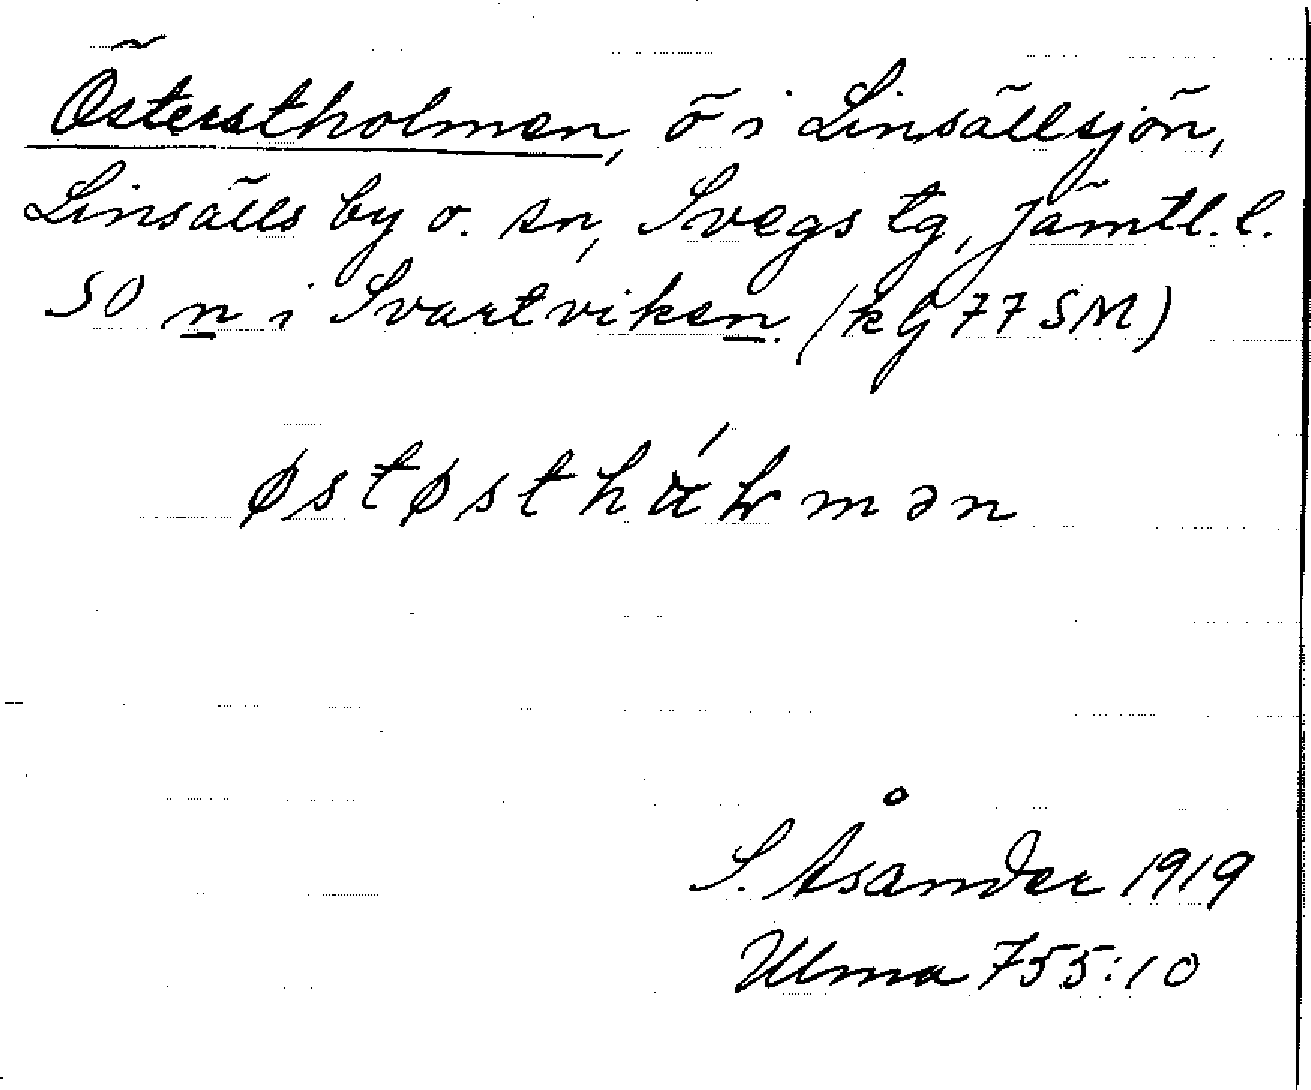 Österstholmen, ö i Linsällsjön,
Linsälls by o. sn, Svegs tg, Jämtl. l.
SO n i Svartviken. (kbl 77 SM)
S. Åsander 1919
Ulma 755:10